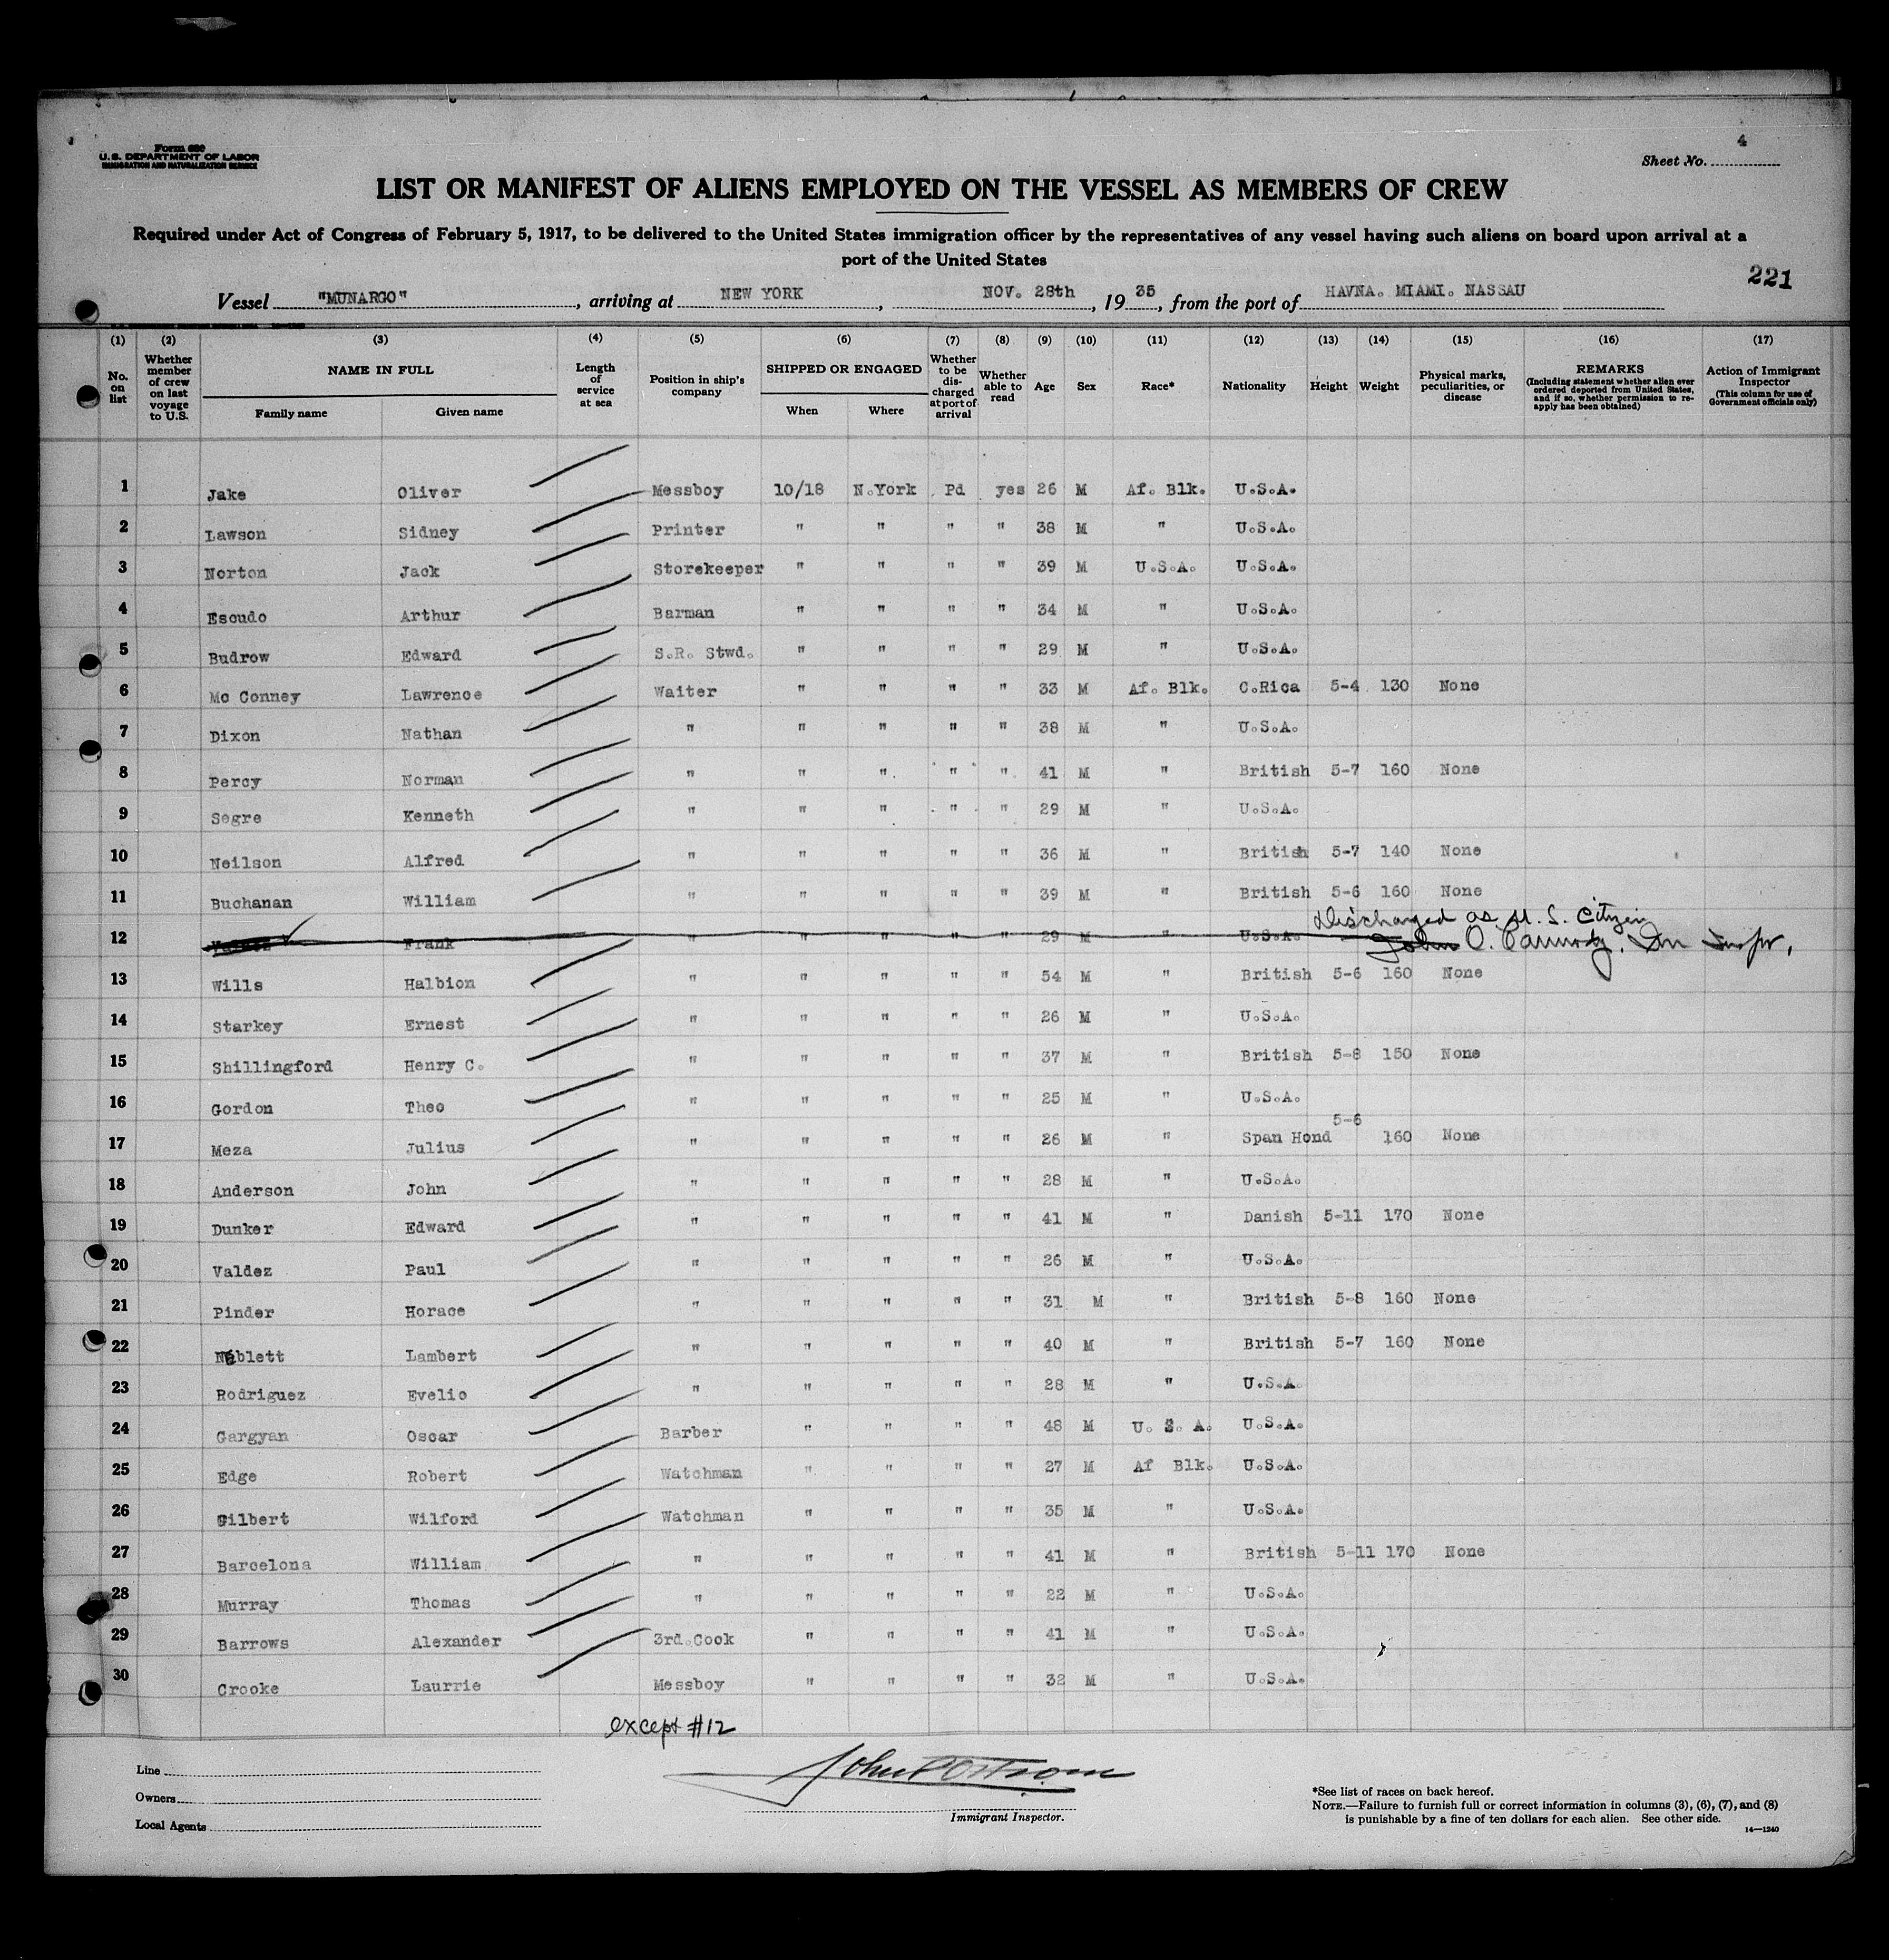 Form 680
U.S. DEPARTMENT OF LABOR
IMMIGRATION AND NATURALIZATION SERVICE
Sheet No. 4
LIST OR MANIFEST OF ALIENS EMPLOYED ON THE VESSEL AS MEMBERS OF CREW
Required under Act of Congress of February 5, 1917, to be delivered to the United States immigration officer by the representatives of any vessel having such aliens on board upon arrival at a
port of the United States
221
Vessel "MUNARGO", arriving at NEW YORK, NOV. 28th, 1935, from the port of HAVNA. MIAMI. NASSAU
(1) No. on list
(2) Whether member of crew on last voyage to U.S.
(3) NAME IN FULL Family name Given name
(4) Length of service at sea
(5) Position in ship's company
(6) SHIPPED OR ENGAGED When Where
(7) Whether to be discharged at port of arrival
(8) Whether able to read
(9) Age
(10) Sex
(11) Race*
(12) Nationality
(13) Height
(14) Weight
(15) Physical marks, peculiarities, or disease
(16) REMARKS (Including statement whether alien ever ordered deported from United States, and if so, whether permission to re-apply has been obtained)
(17) Action of Immigrant Inspector (This column for use of Government officials only)
1 Jake Oliver Messboy 10/18 N.York Pd yes 26 M Af. Blk. U.S.A.
2 Lawson Sidney Printer " " " " 38 M " U.S.A.
3 Norton Jack Storekeeper " " " " 39 M U.S.A. U.S.A.
4 Escudo Arthur Barman " " " " 34 M " U.S.A.
5 Budrow Edward S.R. Stwd. " " " " 29 M " U.S.A.
6 Mc Conney Lawrence Waiter " " " " 33 M Af. Blk. C.Rica 5-4 130 None
7 Dixon Nathan " " " " " 38 M " U.S.A.
8 Percy Norman " " " " " 41 M " British 5-7 160 None
9 Segre Kenneth " " " " " 29 M " U.S.A.
10 Neilson Alfred " " " " " 36 M " British 5-7 140 None
11 Buchanan William " " " " " 39 M " British 5-6 160 None
Discharged as U.S. Citizen
12 Frank " " " " " 29 M " U.S.A. John O.
13 Wills Halbion " " " " " 54 M " British 5-6 160 None
14 Starkey Ernest " " " " " 26 M " U.S.A.
15 Shillingford Henry C. " " " " " 37 M " British 5-8 150 None
16 Gordon Theo " " " " " 25 M " U.S.A.
17 Meza Julius " " " " " 26 M " Span Hond 5-6 160 None
18 Anderson John " " " " " 28 M " U.S.A.
19 Dunker Edward " " " " " 41 M " Danish 5-11 170 None
20 Valdez Paul " " " " " 26 M " U.S.A.
21 Pinder Horace " " " " " 31 M " British 5-8 160 None
22 Neblett Lambert " " " " " 40 M " British 5-7 160 None
23 Rodriguez Evelio " " " " " 28 M " U.S.A.
24 Gargyan Oscar Barber " " " " 48 M U. S. A. U.S.A.
25 Edge Robert Watchman " " " " 27 M Af Blk. U.S.A.
26 Gilbert Wilford Watchman " " " " 35 M " U.S.A.
27 Barcelona William " " " " " 41 M " British 5-11 170 None
28 Murray Thomas " " " " " 22 M " U.S.A.
29 Barrows Alexander 3rd.Cook " " " " 41 M " U.S.A.
30 Crooke Laurrie Messboy " " " " 32 M " U.S.A.
except #12
Line
Owners
Local Agents
Immigrant Inspector.
*See list of races on back hereof.
NOTE.—Failure to furnish full or correct information in columns (3), (6), (7), and (8)
is punishable by a fine of ten dollars for each alien. See other side.
14—1240